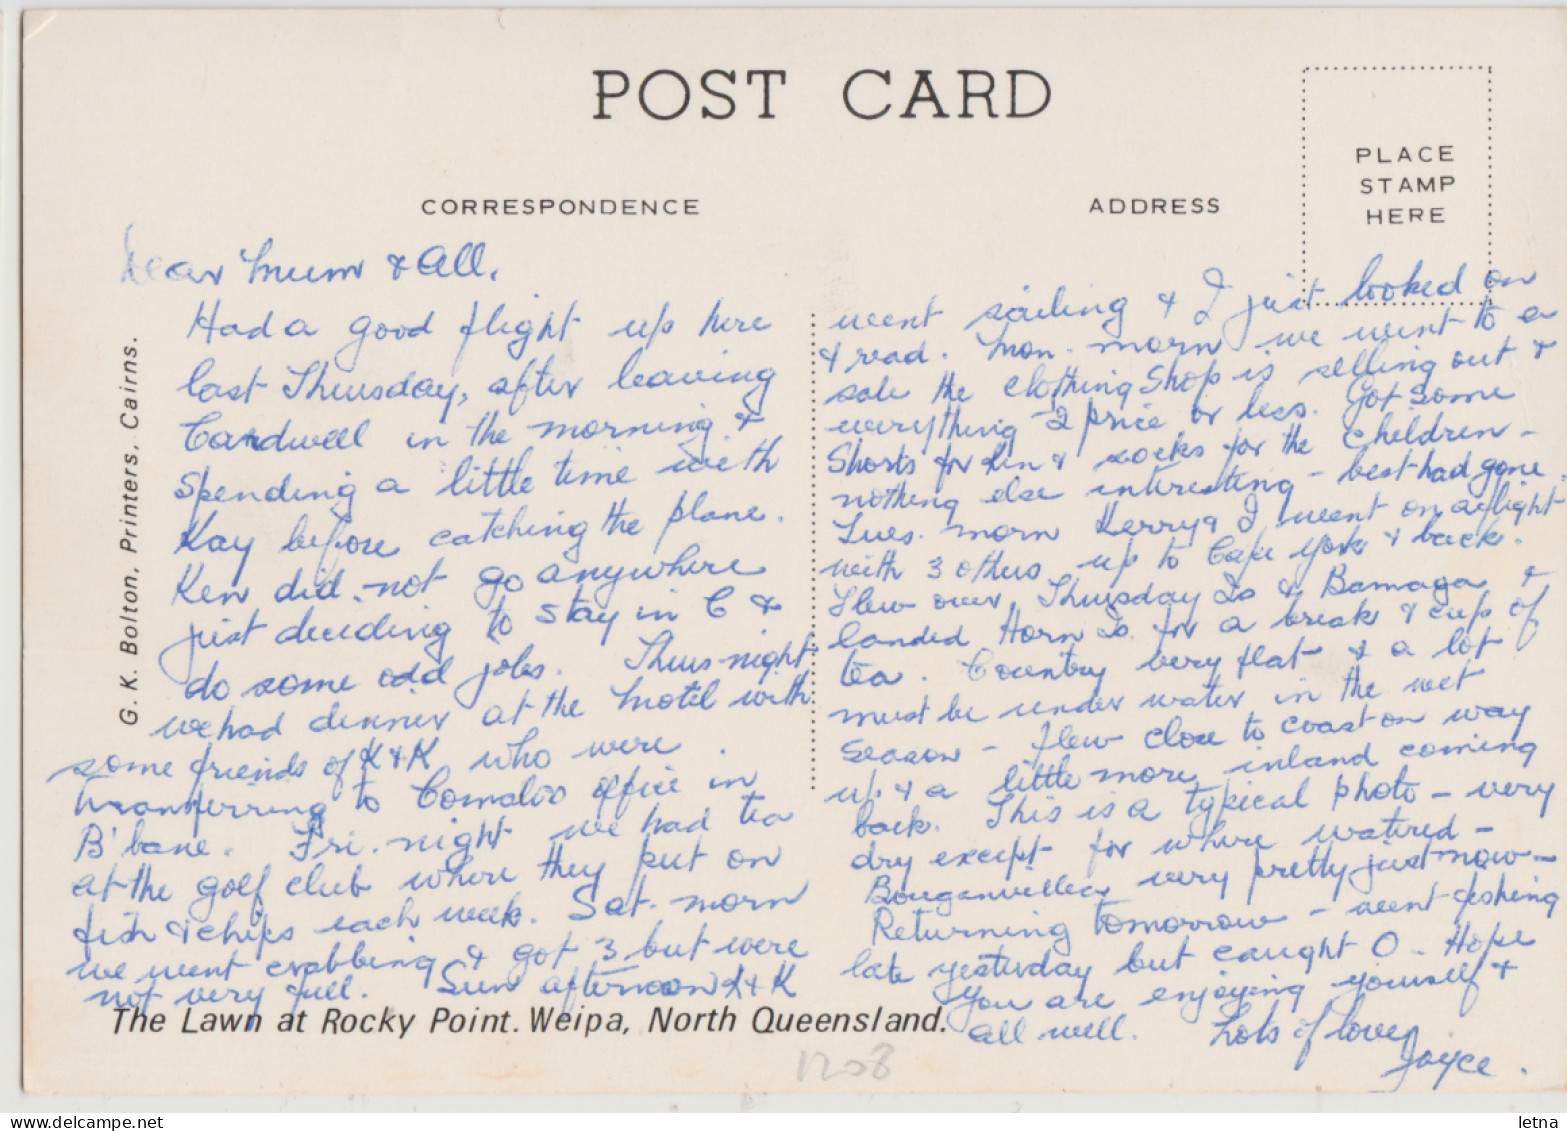 POST CARD
CORRESPONDENCE
ADDRESS
PLACE
STAMP
HERE
G. K. Bolton, Printers. Cairns.
Dear Mum & All.
Had a good flight up here
last Thursday, after leaving
Cardwell in the morning &
spending a little time with
Kay before catching the plane.
Ken did not go anywhere
just deciding to stay in C &
do some odd jobs. Thurs night
we had dinner at the Motel with
some friends of K & K who were
transferring to Comalco office in
B'bane. Fri. night we had tea
at the golf club where they put on
fish & chips each week. Sat. morn
we went crabbing & got 3 but were
not very full. Sun afternoon K & K
went sailing & I just looked on
& read. Mon. morn we went to a
sale the clothing Shop is selling out &
everything ½ price or less. Got some
Shorts for Ken & socks for the children -
nothing else interesting - best had gone.
Tues. morn Kerry & I went on a flight
with 3 others up to Cape York & back.
Flew over Thursday Is & Bamaga &
landed Horn Is for a break & cup of
tea. Country very flat & a lot
must be under water in the wet
season - flew close to coast on way
up & a little more inland coming
back. This is a typical photo - very
dry except for where watered -
Bouganvillea very pretty just now -
Returning tomorrow - went fishing
late yesterday but caught 0. Hope
you are enjoying yourself &
all well. Lots of love,
Joyce.
The Lawn at Rocky Point. Weipa, North Queensland.
1208
www.delcampe.net
letna